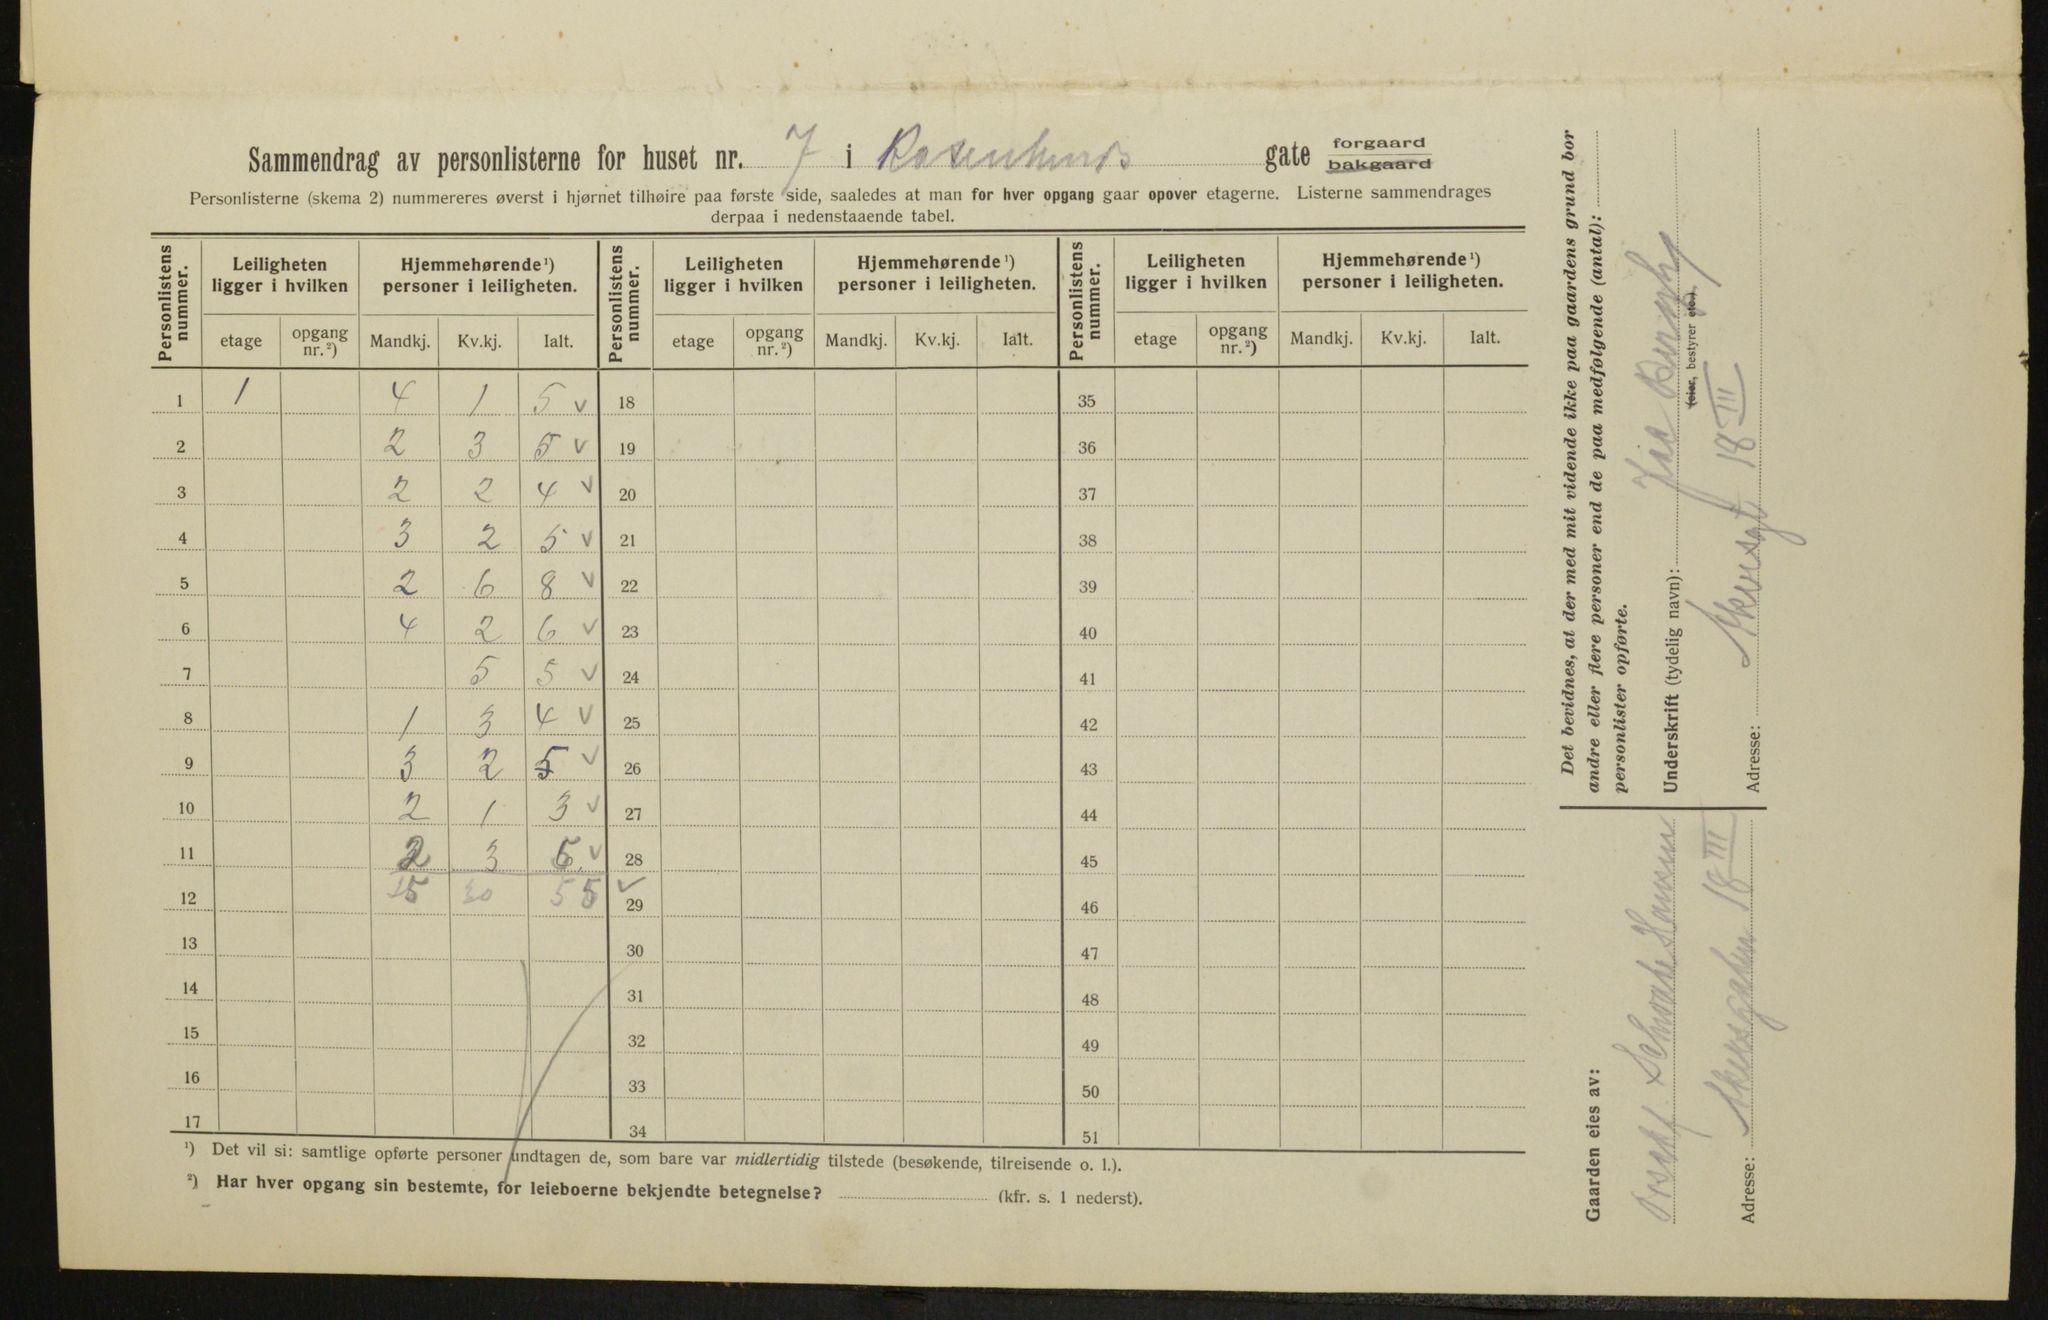 Sammendrag av personlisterne for huset nr. 7 i Rosenlunds gate forgaard
bakgaard
Personlisterne (skema 2) nummereres øverst i hjørnet tilhøire paa første side, saaledes at man for hver opgang gaar opover etagerne. Listerne sammendrages
derpaa i nedenstaaende tabel.
Personlistens nummer. Leiligheten ligger i hvilken Hjemmehørende ¹) personer i leiligheten. Personlistens nummer. Leiligheten ligger i hvilken Hjemmehørende ¹) personer i leiligheten. Personlistens nummer. Leiligheten ligger i hvilken Hjemmehørende ¹) personer i leiligheten.
etage opgang nr.²) Mandkj. Kv.kj. Ialt. etage opgang nr.²) Mandkj. Kv.kj. Ialt. etage opgang nr.²) Mandkj. Kv.kj. Ialt.
1 1 4 1 5 v 18 35
2 2 3 5 v 19 36
3 2 2 4 v 20 37
4 3 2 5 v 21 38
5 2 6 8 v 22 39
6 4 2 6 v 23 40
7 5 5 v 24 41
8 1 3 4 v 25 42
9 3 2 5 v 26 43
10 2 1 3 v 27 44
11 2 3 5 v 28 45
12 25 30 55 v 29 46
13 30 47
14 31 48
15 32 49
16 33 50
17 34 51
¹) Det vil si: samtlige opførte personer undtagen de, som bare var midlertidig tilstede (besøkende, tilreisende o. l.).
²) Har hver opgang sin bestemte, for leieboerne bekjendte betegnelse? (kfr. s. 1 nederst).
Det bevidnes, at der med mit vidende ikke paa gaardens grund bor
andre eller flere personer end de paa medfølgende (antal):
personlister opførte.
Underskrift (tydelig navn):
(eier, bestyrer etc.)
Adresse: Akersgt 18 III
Gaarden eies av:
Schwabe Hansen
Adresse: Akersgaten 18 III